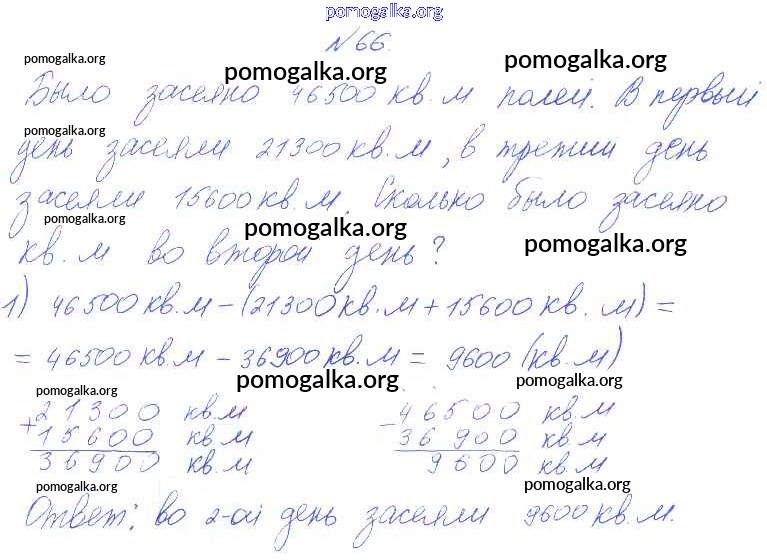 pomogalka.org
№66.
pomogalka.org pomogalka.org pomogalka.org
Было засеяно 46500 кв.м полей. В первый
pomogalka.org
день засеяли 21300 кв.м, в третий день
засеяли 15600 кв.м. Сколько было засеяно
pomogalka.org pomogalka.org pomogalka.org
кв.м во второй день?
1) 46500 кв.м - (21300 кв.м + 15600 кв.м) =
= 46500 кв.м - 36900 кв.м = 9600 (кв.м)
pomogalka.org pomogalka.org pomogalka.org
+ 21300 кв.м - 46500 кв.м
15600 кв.м 36900 кв.м
36900 кв.м 9600 кв.м
pomogalka.org pomogalka.org
Ответ: во 2-ой день засеяли 9600 кв.м.